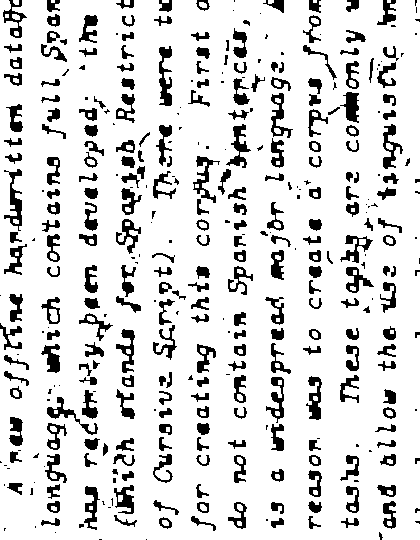 A new offline handwritten datab
language, which contains full Span
has recently been developed: the
(which stands for Spanish Restrict
of Cursive Script). There were tw
for creating this corpus. First o
do not contain Spanish sentences,
is a widespread major language.
reason was to create a corpus from
tasks. These tasks are commonly u
and allow the use of linguistic kn